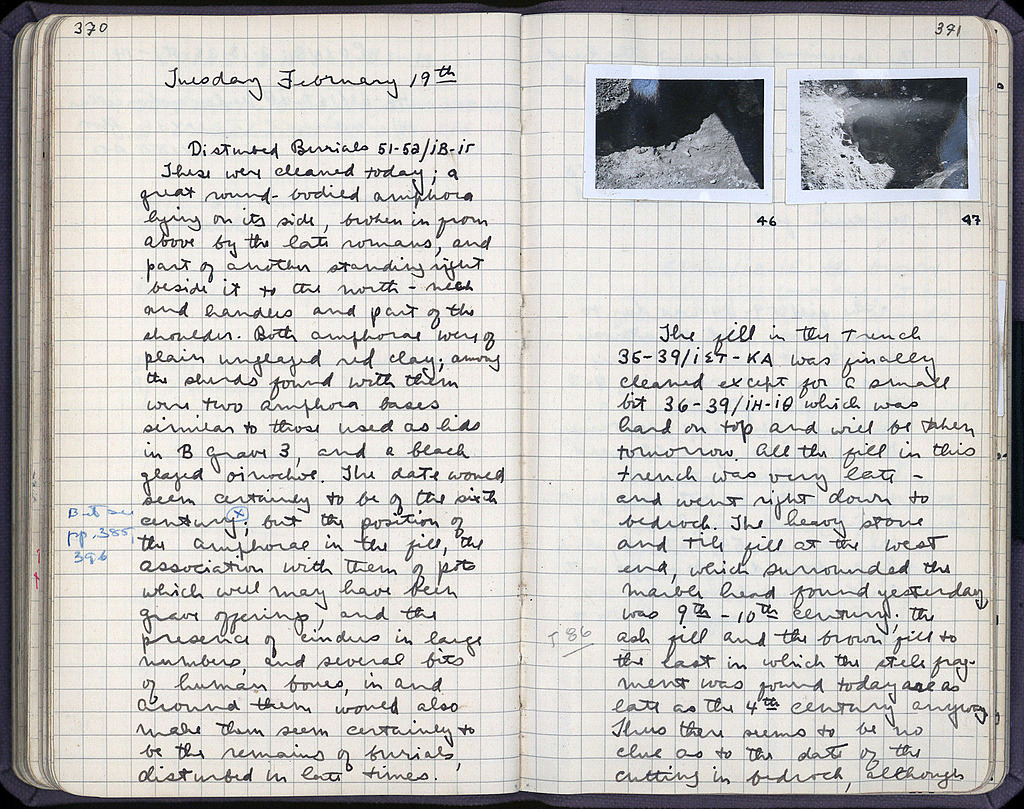 370
Tuesday February 19th
Disturbed Burials 51-52/ΙΒ-ΙΓ
These were cleaned today; a
great round-bodied amphora
lying on its side, broken in from
above by the late romans, and
part of another standing right
beside it to the north - neck
and handles and part of the
shoulder. Both amphorae were of
plain unglazed red clay; among
the sherds found with them
were two amphora bases
similar to those used as lids
in B grave 3, and a black
glazed oinochoe. The date would
seem certainly to be of the sixth
century (x); but the position of
the amphorae in the fill, the
association with them of pots
which well may have been
grave offerings, and the
presence of cinders in large
numbers, and several bits
of human bones, in and
around them would also
make them seem certainly to
be the remains of burials,
disturbed in late times.
But see
pp. 385,
396
371
46
47
The fill in the trench
35-39/ΙΣΤ-ΚΑ was finally
cleaned except for a small
bit 36-39/ΙΗ-ΙΘ which was
hard on top and will be taken
tomorrow. All the fill in this
trench was very late -
and went right down to
bedrock. The heavy stone
and tile fill at the west
end, which surrounded the
marble head found yesterday
was 9th-10th century; the
ash fill and the brown fill to
the east in which the stele frag-
ment was found today are as
late as the 4th century anyway
Thus there seems to be no
clue as to the date of the
cutting in bedrock, although
86